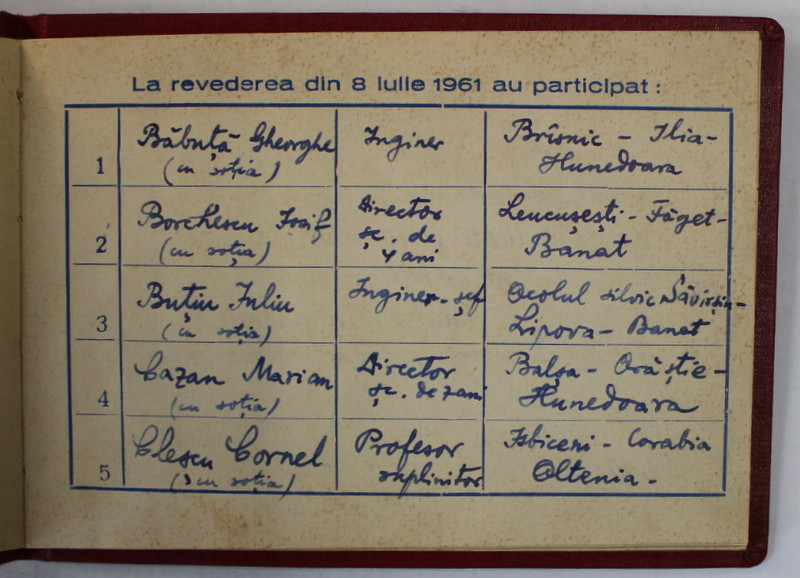 La revederea din 8 Iulie 1961 au participat :
1 Băbuță Gheorghe Inginer Brîsnic - Ilia -
(cu soția) Hunedoara
2 Borchescu Iosif Director Leucușești - Făget -
(cu soția) șc. de Banat
4 ani
3 Buțiu Iuliu Inginer-șef Ocolul silvic Săvîrșin -
(cu soția) Lipova - Banat
4 Cazan Marian Director Balșa - Orăștie -
(cu soția) șc. de 7 ani Hunedoara
5 Clescu Cornel Profesor Isbiceni - Corabia
(cu soția) suplinitor Oltenia -